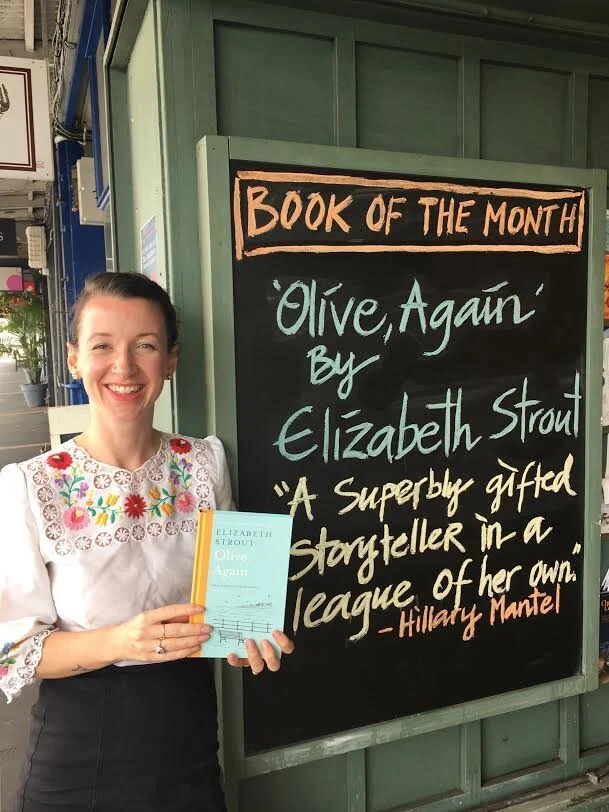 BOOK OF THE MONTH
'Olive, Again'
By
Elizabeth Strout
"A Superbly gifted
Storyteller in a
league of her own."
- Hillary Mantel
ELIZABETH
STROUT
Olive,
Again